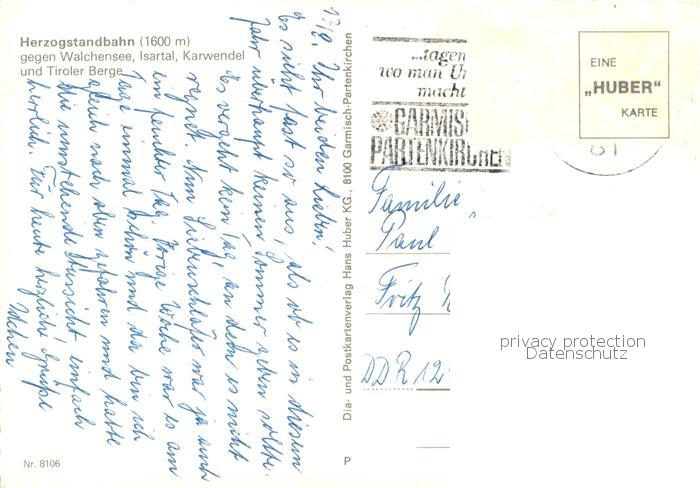 Herzogstandbahn (1600 m)
gegen Walchensee, Isartal, Karwendel
und Tiroler Berge
17/8. Ihr beiden Lieben!
Es sieht fast so aus, als ob es in diesem
Jahr überhaupt keinen Sommer geben sollte.
Es vergeht kein Tag, an dem es nicht
regnet. Am Siebenschläfer war ja auch
ein feuchter Tag. Vorige Woche war es am
Tage einmal schön und da bin ich
gleich nach oben gefahren und hatte
die umstehende Aussicht einfach
herrlich. Für heute herzliche Grüße
Nr. 8106
Dia- und Postkartenverlag Hans Huber KG., 8100 Garmisch-Partenkirchen
P
...tagen
wo man Ur
macht
GARMISC
PARTENKIRCHEN
81
EINE
„HUBER"
KARTE
Familie
Paul
Fritz
DDR 12
privacy protection
Datenschutz